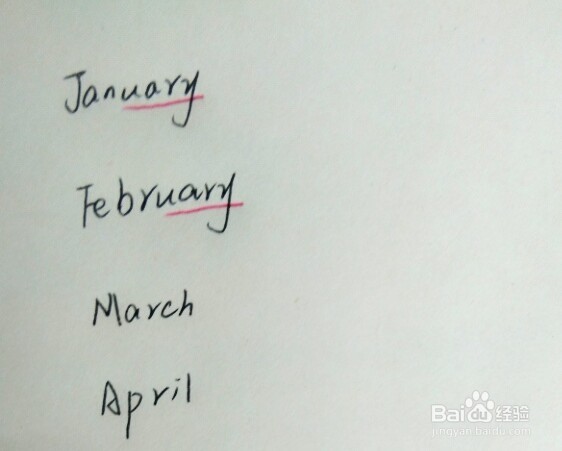 January
February
March
April
Bai 经验
jingyan.baidu.com